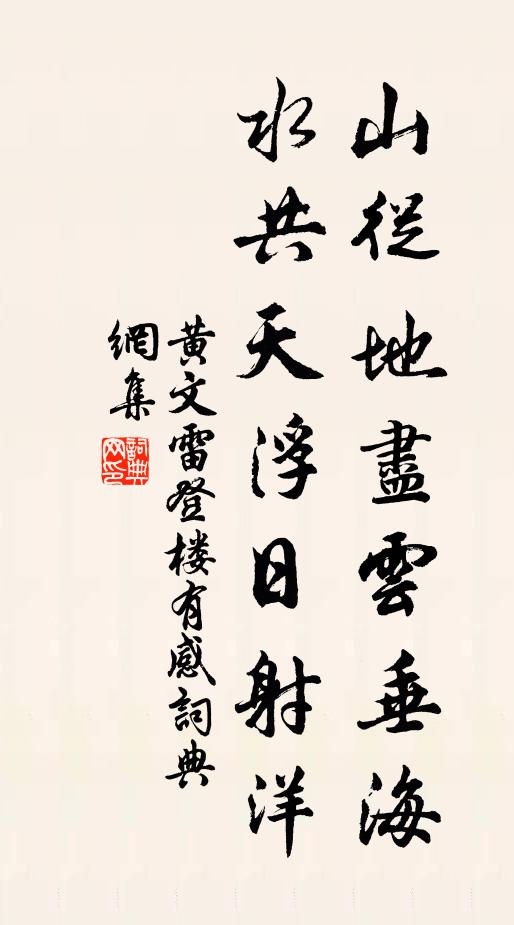 山從地盡雲垂海
水共天浮日射洋
黄文雷登楼有感詞典
網集
詞典
网印